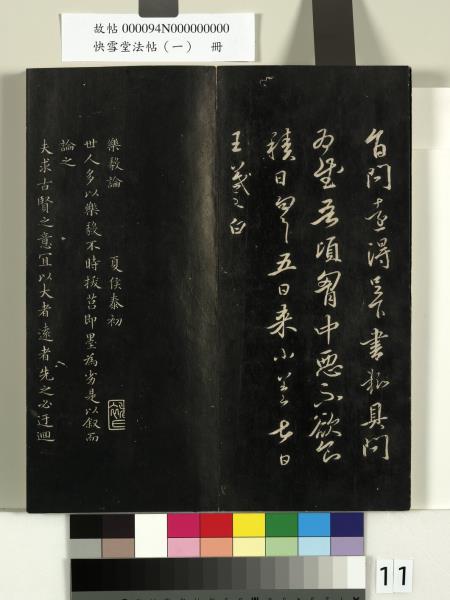 故帖 000094N000000000
快雪堂法帖(一) 冊
問 得 書 具問
為慰吾頃胸中惡不欲食
積日 五日來小差 七日
王羲之白
樂毅論 夏侯泰初
世人多以樂毅不時拔莒即墨為劣是以叙而
論之
夫求古賢之意宜以大者遠者先之必迂迴
11